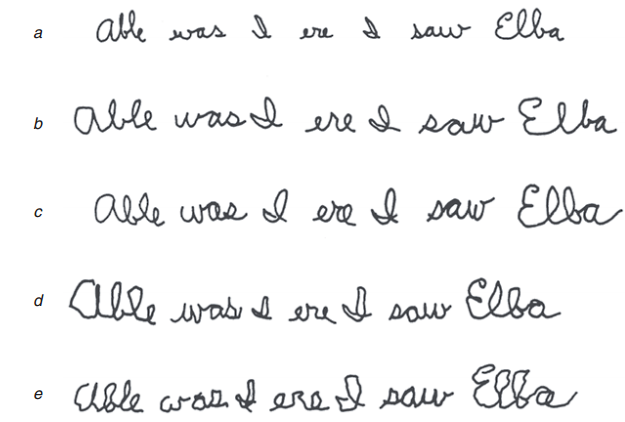 a Able was I ere I saw Elba
b Able was I ere I saw Elba
c Able was I ere I saw Elba
d Able was I ere I saw Elba
e Able was I ere I saw Elba